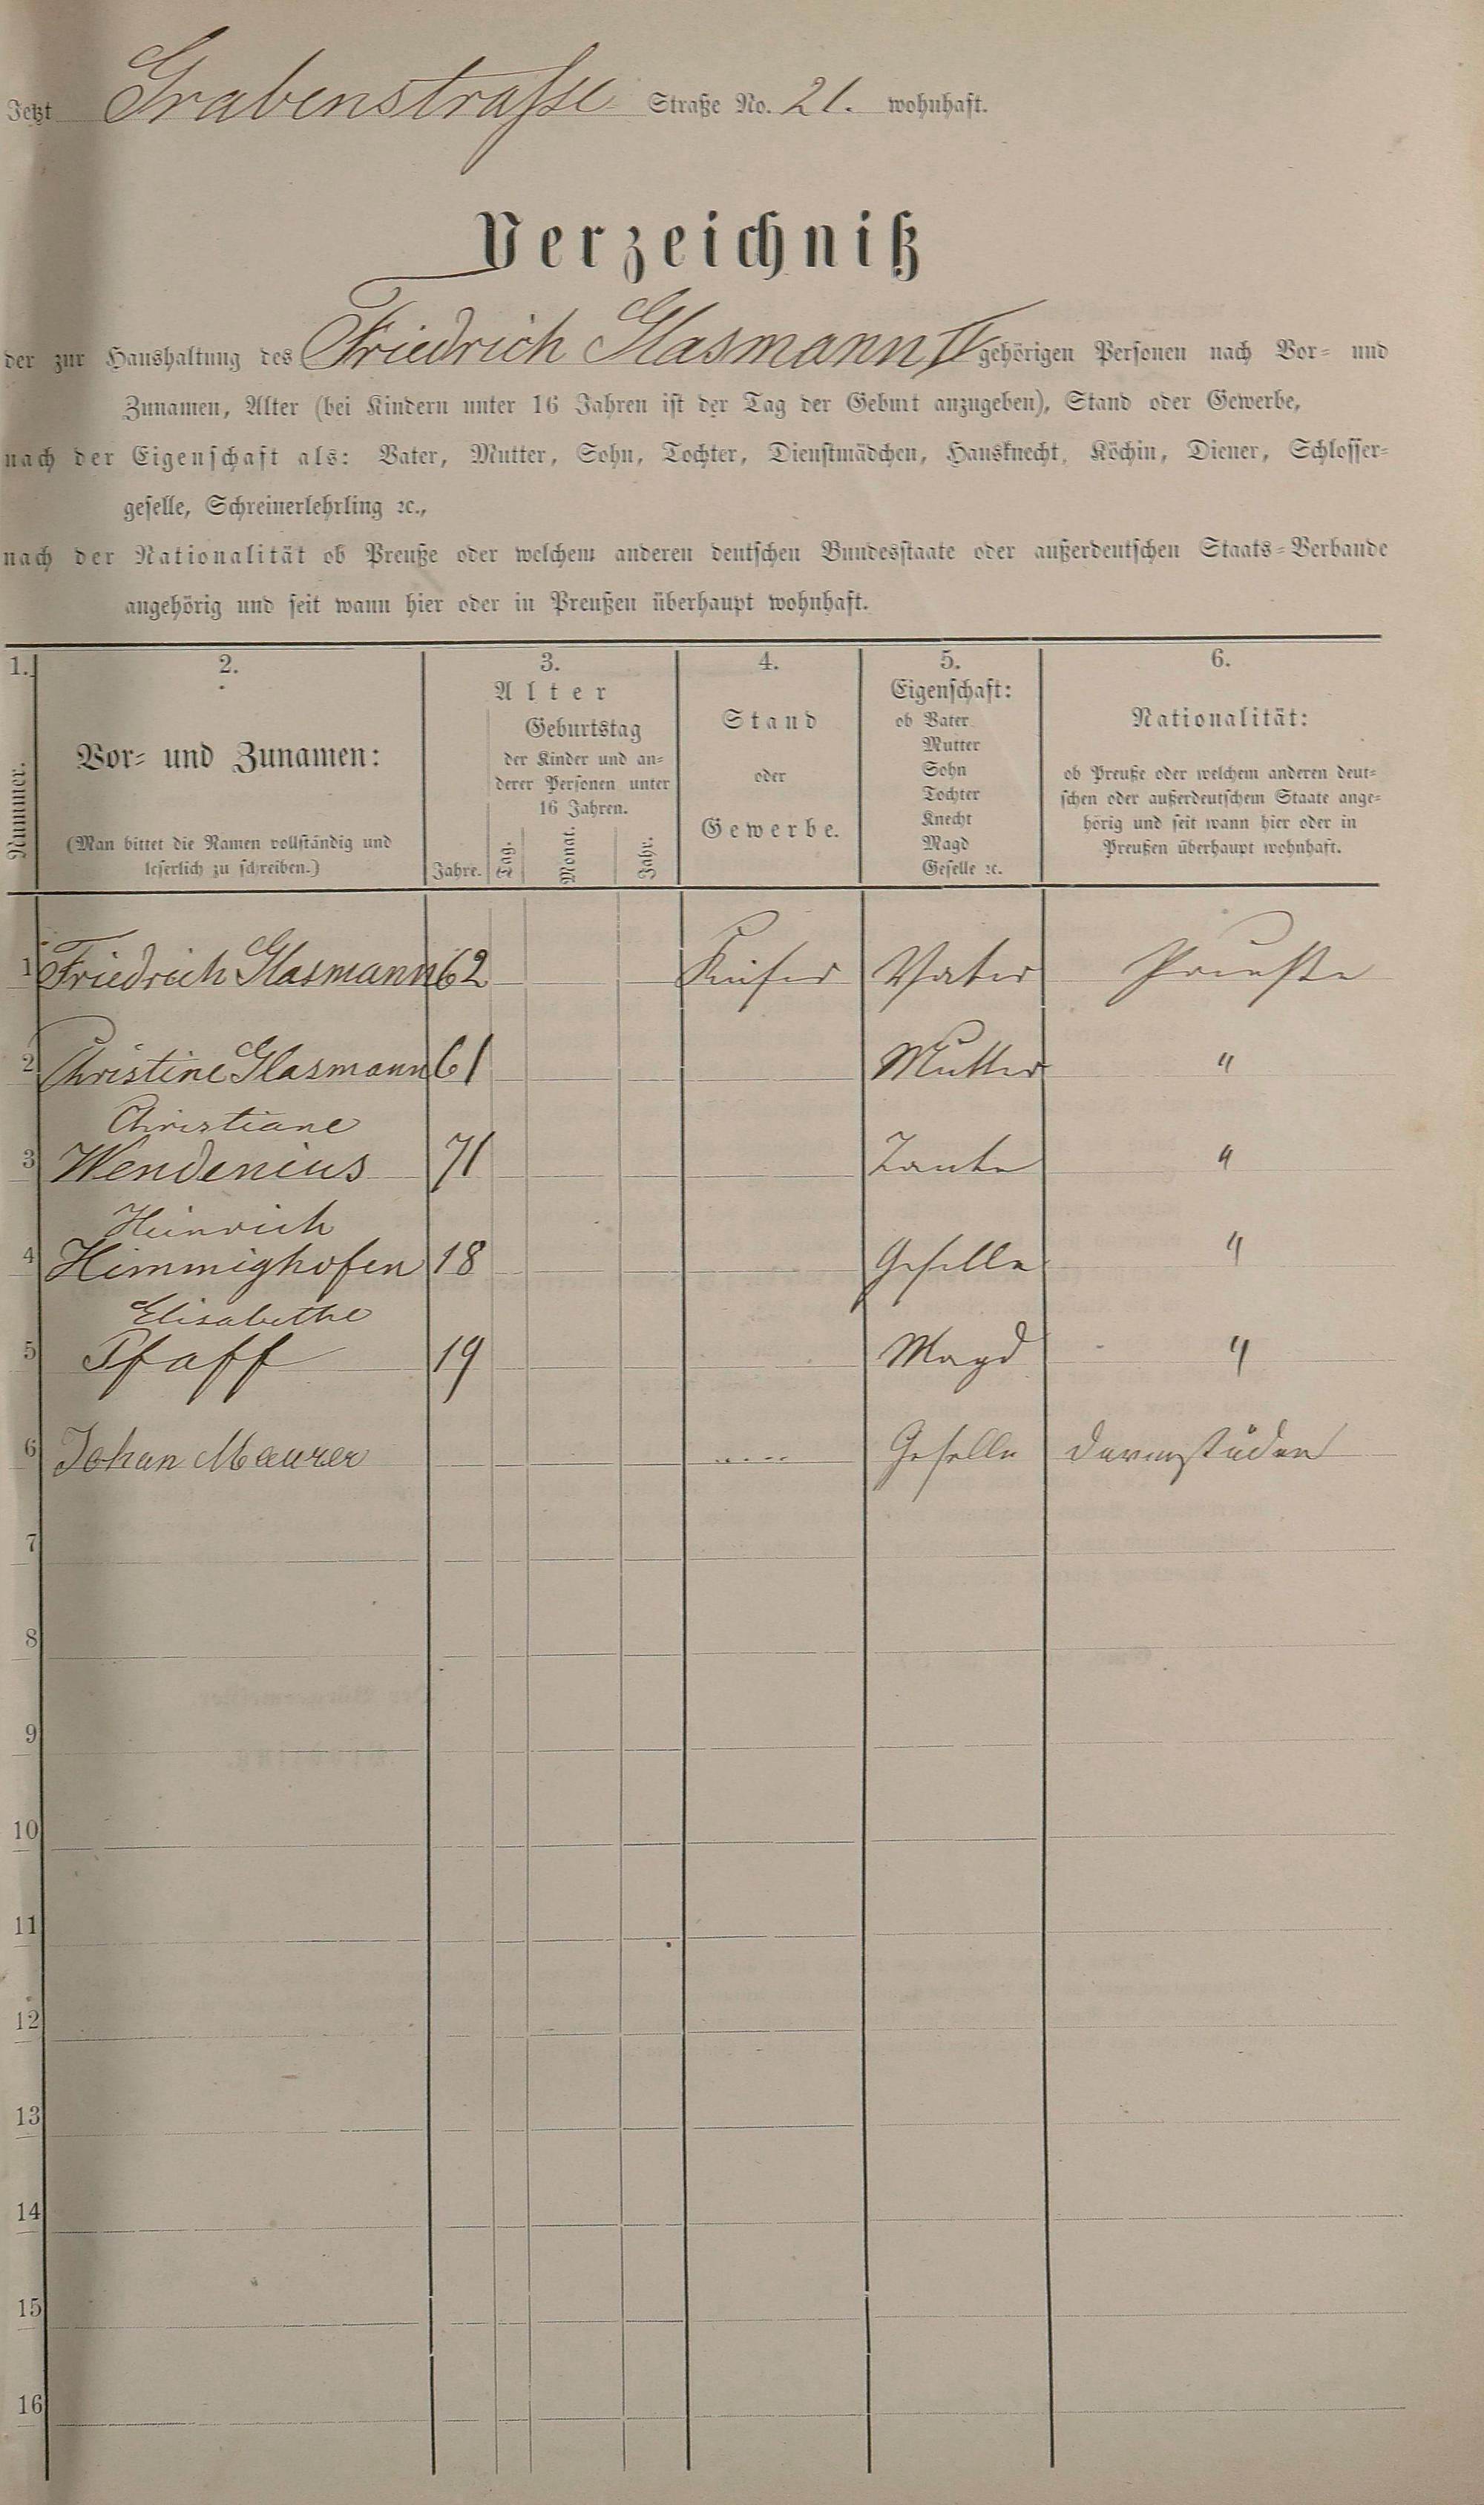 Jetzt Grabenstraße Straße No. 21. wohnhaft.
Verzeichniß
der zur Haushaltung des Friedrich Glasmann II gehörigen Personen nach Vor- und
Zunamen, Alter (bei Kindern unter 16 Jahren ist der Tag der Geburt anzugeben), Stand oder Gewerbe,
nach der Eigenschaft als: Vater, Mutter, Sohn, Tochter, Dienstmädchen, Hausknecht, Köchin, Diener, Schlosser-
geselle, Schreinerlehrling ꝛc.,
nach der Nationalität ob Preuße oder welchem anderen deutschen Bundesstaate oder außerdeutschen Staats-Verbande
angehörig und seit wann hier oder in Preußen überhaupt wohnhaft.
1. 2. 3. 4. 5. 6.
Nummer.
Vor- und Zunamen:
(Man bittet die Namen vollständig und
leserlich zu schreiben.)
Alter
Geburtstag
der Kinder und an-
derer Personen unter
16 Jahren.
Jahre. Tag. Monat. Jahr.
Stand
oder
Gewerbe.
Eigenschaft:
ob Vater
Mutter
Sohn
Tochter
Knecht
Magd
Geselle ꝛc.
Nationalität:
ob Preuße oder welchem anderen deut-
schen oder außerdeutschem Staate ange-
hörig und seit wann hier oder in
Preußen überhaupt wohnhaft.
1 Friedrich Glasmann 62 Küfer Vater Preuße
2 Christine Glasmann 61 Mutter "
Christiane
3 Wendenius 71 Tante "
Heinrich
4 Himmighofen 18 Geselle "
Elisabethe
5 Pfaff 19 Magd "
6 Johan Maurer Geselle
7
8
9
10
11
12
13
14
15
16